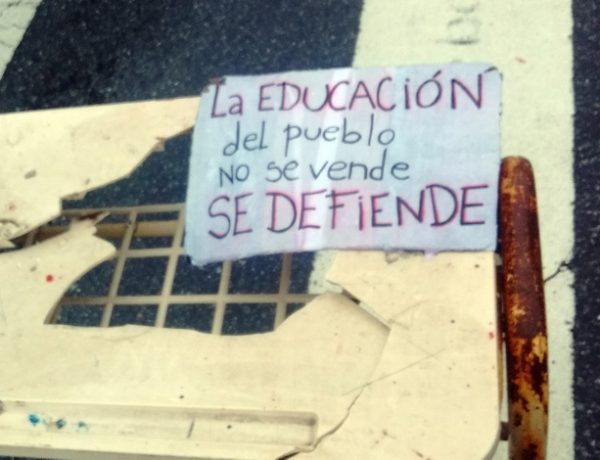 La EDUCACIÓN
del pueblo
NO se vende
SE DEFiENDE